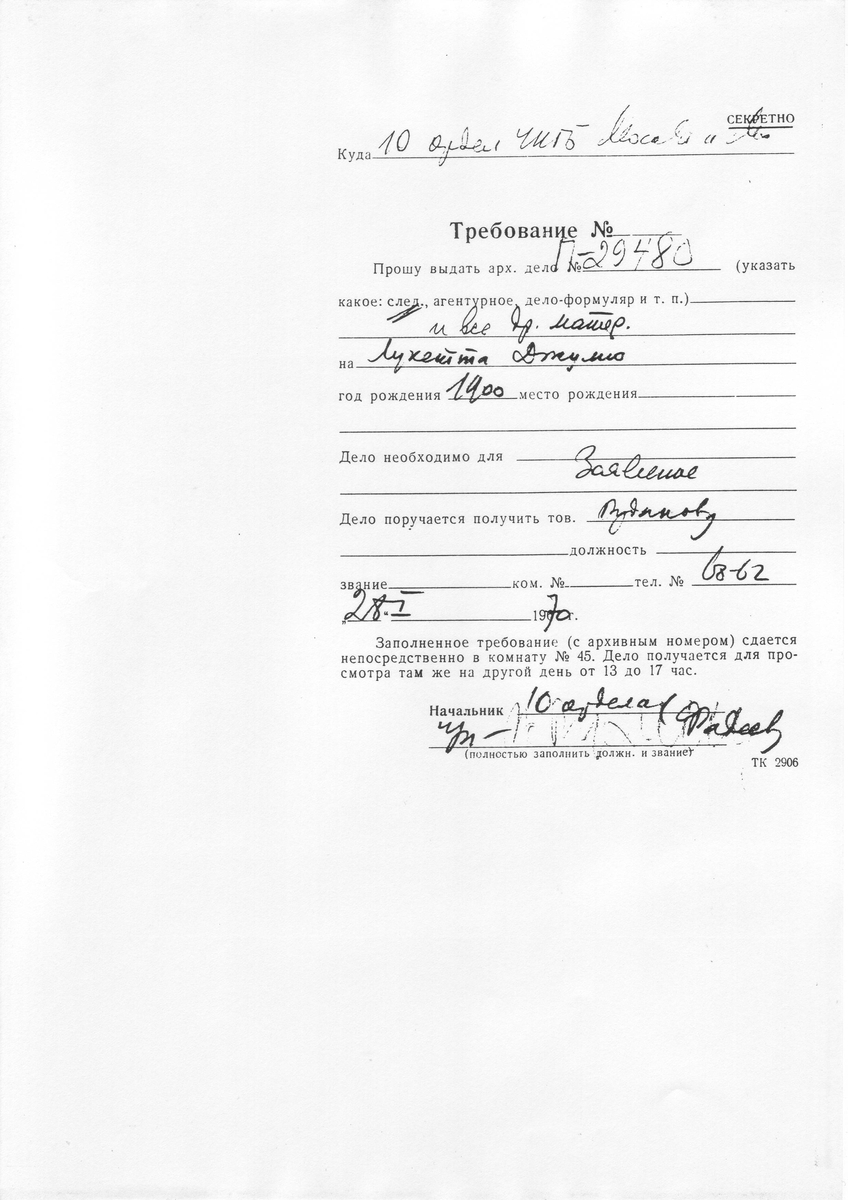 СЕКРЕТНО
Куда 10 отдел УКГБ
Требование №
Прошу выдать арх. дело № П-29480 (указать
какое: след., агентурное, дело-формуляр и т. п.)
и все др. матер.
на Лукетта Джулио
год рождения 1900 место рождения
Дело необходимо для
Дело поручается получить тов.
должность
звание ком. № тел. № 68-62
„28“ I 1970г.
Заполненное требование (с архивным номером) сдается
непосредственно в комнату № 45. Дело получается для про-
смотра там же на другой день от 13 до 17 час.
Начальник 10 отдела
Фадеев
(полностью заполнить должн. и звание)
ТК 2906